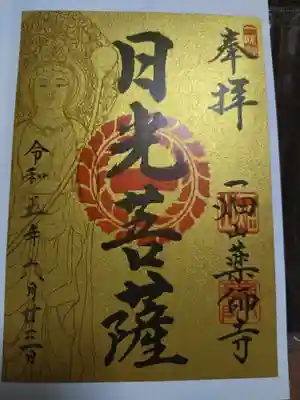 奉拝
一畑山薬師寺
日光菩薩
令和五年六月廿三日